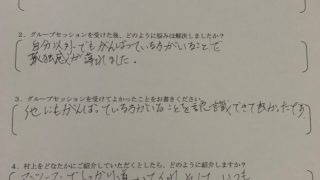 2．グループセッションを受けた後、どのように悩みは解決しましたか？
自分以外でもがんばっている方がいることで
孤独感が薄れました。
3．グループセッションを受けてよかったことをお書きください
他にもがんばっている方がいることを認識できて良かったです
4．村上をどなたかにご紹介していただくとしたら、どのように紹介しますか？